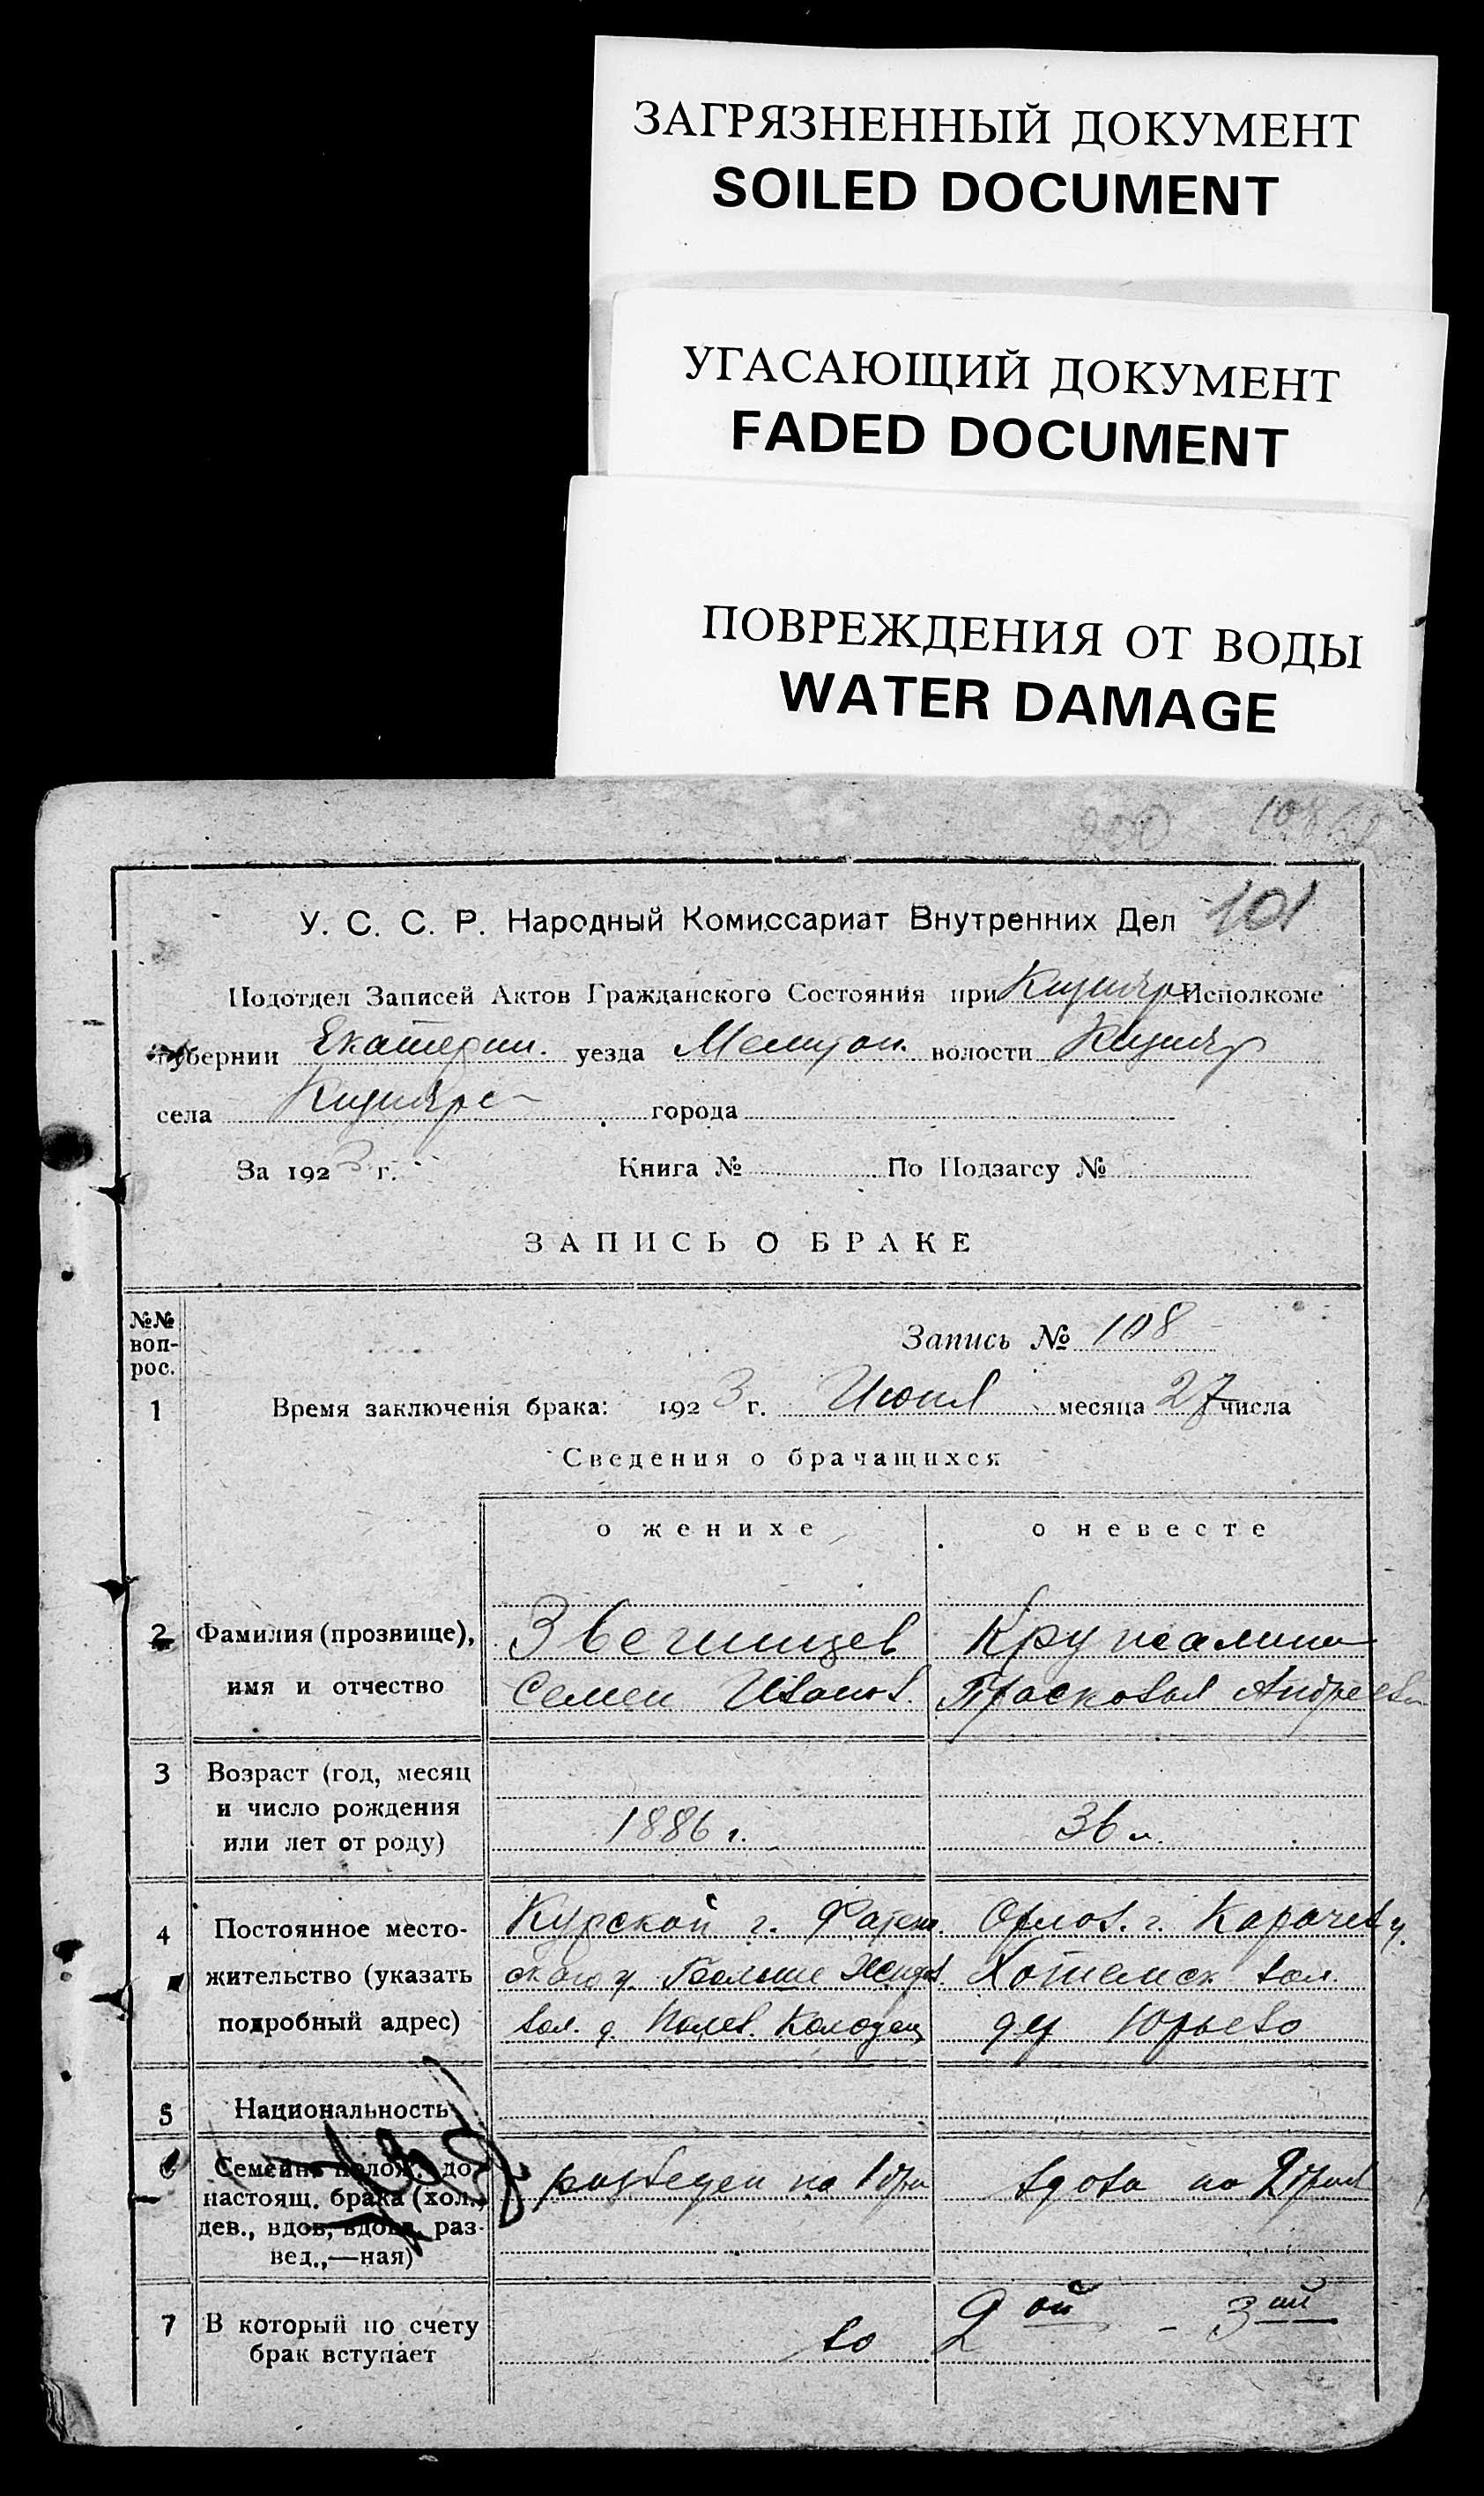 ЗАГРЯЗНЕННЫЙ ДОКУМЕНТ
SOILED DOCUMENT
УГАСАЮЩИЙ ДОКУМЕНТ
FADED DOCUMENT
ПОВРЕЖДЕНИЯ ОТ ВОДЫ
WATER DAMAGE
101
У. С. С. Р. Народный Комиссариат Внутренних Дел
Подотдел Записей Актов Гражданского Состояния при Исполкоме
губернии Екатерин. уезда волости
села города
За 1923 г. Книга № По Подзагсу №
ЗАПИСЬ О БРАКЕ
№№ воп-
рос.
Запись № 108
1 Время заключенія брака: 1923 г. Июня месяца 27 числа
Сведения о брачащихся
о женихе о невесте
2 Фамилия (прозвище), Звегинцев
имя и отчество Семен Иванов. Прасковья Андреевн
3 Возраст (год, месяц
и число рождения
или лет от роду) 1886 г. 36 л.
4 Постоянное место- Курской г. Фатеж. Орлов. г. Карачев у.
жительство (указать ского у. вол.
подробный адрес) вол. д. Колодец дер Юрьево
5 Национальность
6 Семейн. полож. до разведен по 1 бра вдова по 2 брак
настоящ. брака (хол.,
дев., вдов, вдова, раз-
вед.,—ная)
7 В который по счету во 2ой - 3ий
брак вступает